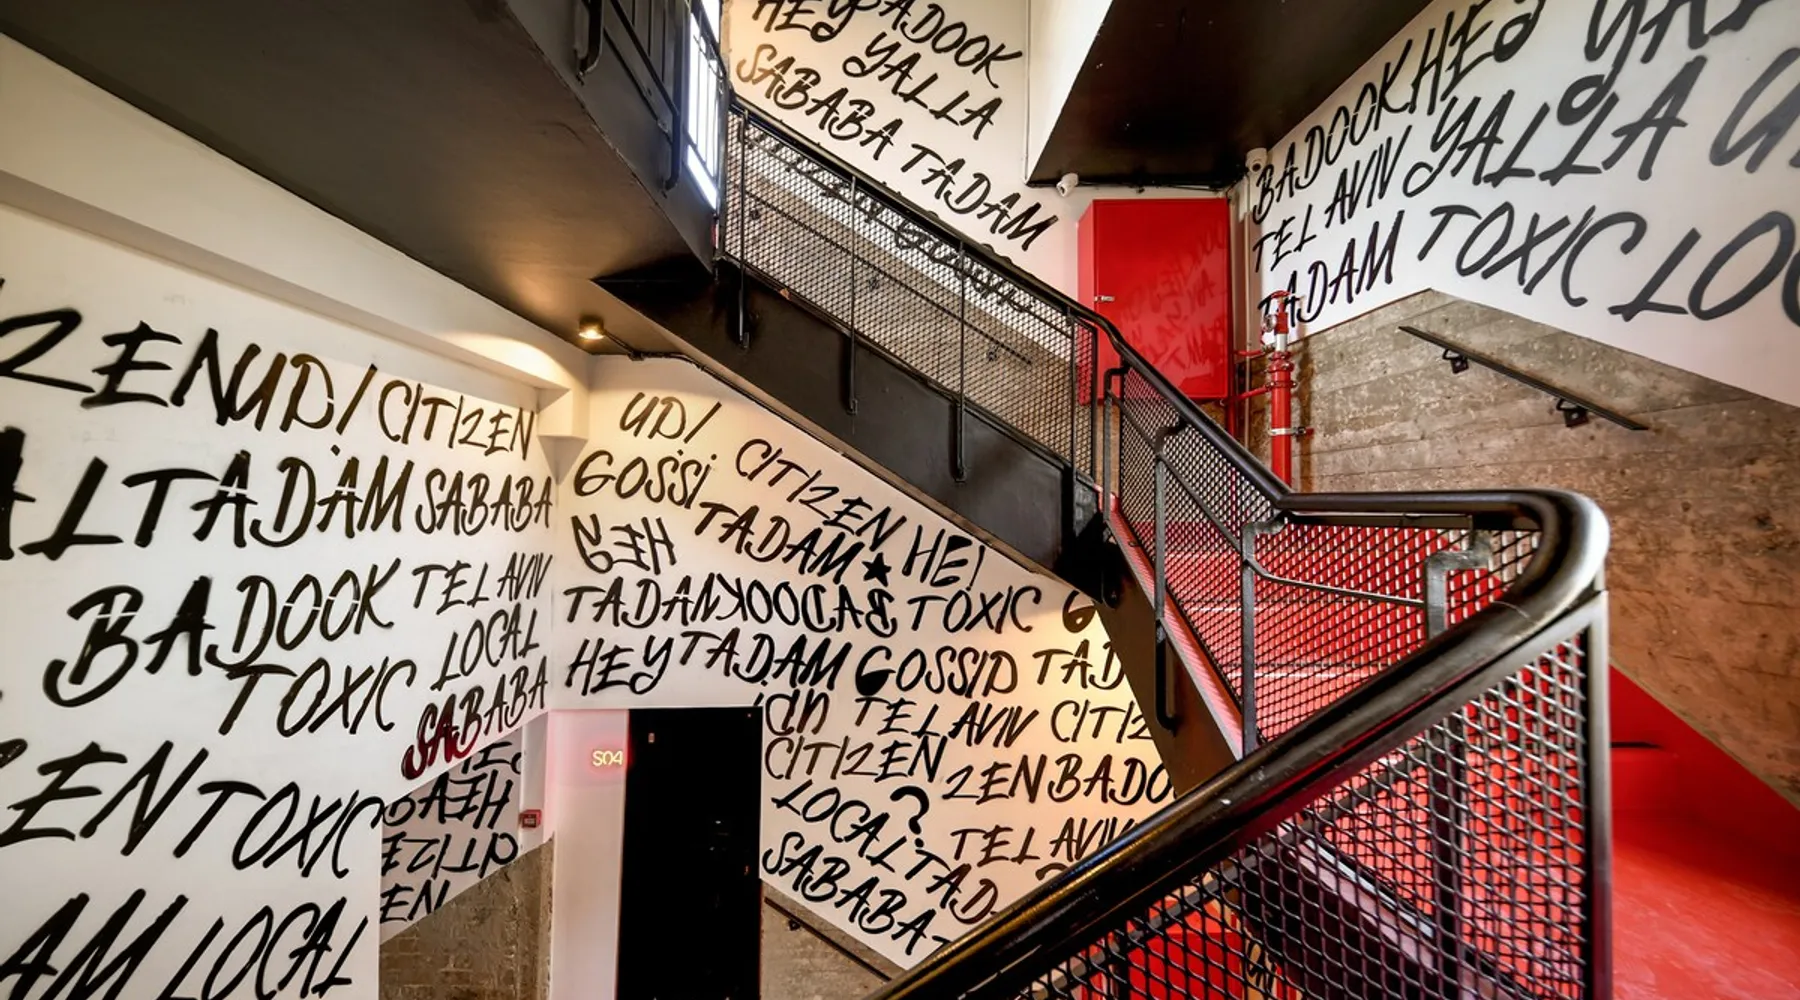 BADOOK
HEY YALLA
SABABA TADAM
BADOOK HEY
TEL AVIV YALLA
TADAM TOXIC LOC
ZEN UDI CITIZEN
AL TADAM SABABA
BADOOK TEL AVIV
TOXIC LOCAL
SABABA
ZEN TOXIC
AM LOCAL
UDI CITIZEN HEY
GOSSI TADAM
HEY
TADAM BADOOK TOXIC G
HEY TADAM GOSSIP TAD
TEL AVIV CITIZ
CITIZEN ZEN BADO
LOCAL TAD
? TEL AVIV
SABABA
S04
HEY
CITIZE
EN